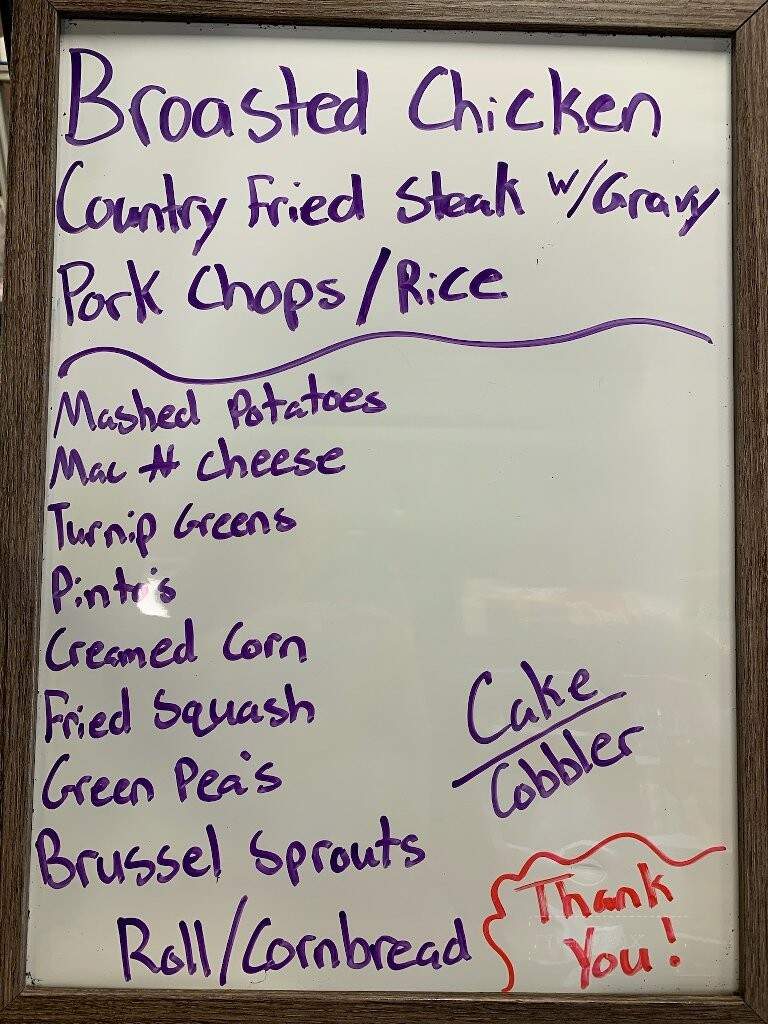 Broasted Chicken
Country Fried Steak w/Gravy
Pork Chops/Rice
Mashed Potatoes
Mac N cheese
Turnip Greens
Pinto's
Creamed Corn
Fried Squash
Green Pea's
Brussel Sprouts
Roll/Cornbread
Cake
Cobbler
Thank
You!